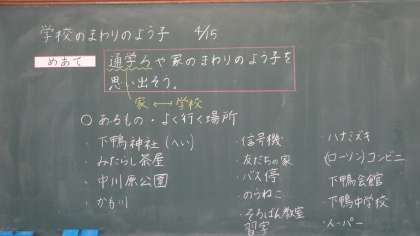 学校のまわりのよう子 4/15
めあて
通学ろや家のまわりのよう子を
思い出そう。
家 ←→ 学校
○ あるもの・よく行く場所
・下鴨神社(へい)
・みたらし茶屋
・中川原公園
・かも川
・信号機
・友だちの家
・バス停
・のらねこ
・そろばん教室
習字
・ハナミズキ
・(ローソン)コンビニ
・下鴨会館
・下鴨中学校
・スーパー